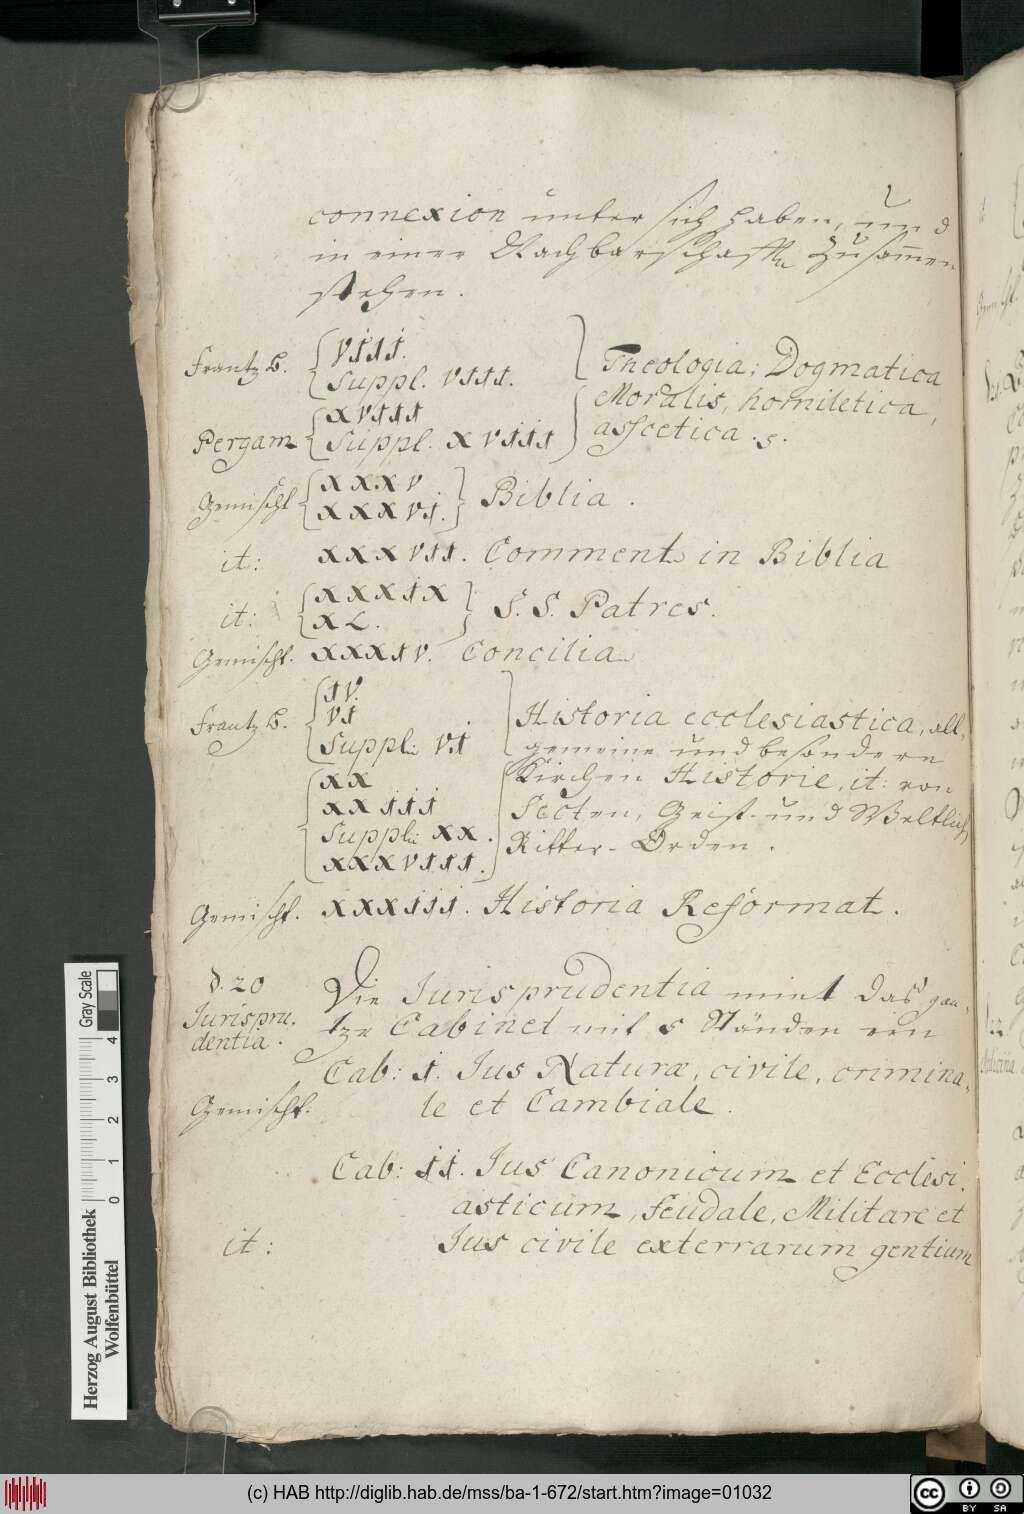 connexion unter sich haben, und
in einer Nachbarschafft zusammen
stehen.
Frantz B. VIII.
Suppl. VIII.
Theologia: Dogmatica
XVIII
Moralis, homiletica,
Pergam Suppl. XVIII
ascetica.s.
Gemischt XXXV
XXXVI. Biblia.
it: XXXVII. Comment in Biblia
it: XXXIX
XL. S. S. Patres.
Gemischt. XXXIV. Concilia
Frantz B. IV.
VI
Suppl: VI
Historia ecclesiastica, all-
gemeine und besondere
XX
Kirchen Historie, it: von
XXIII
Secten, Geist- und Weltlich
Suppl: XX.
Ritter-Orden.
XXXVIII.
Gemischt. XXXIII. Historia Reformat.
§. 20
Jurispru-
dentia.
Die Jurisprudentia nimt das gan-
tze Cabinet mit 5 Ständen ein
Cab: I. Jus Naturæ, civile, crimina-
Gemischt. le et Cambiale.
Cab: II. Jus Canonicum et Ecclesi-
asticum, feudale, Militare et
it: Jus civile exterrarum gentium
Gray Scale
0 1 2 3 4
Herzog August Bibliothek
Wolfenbüttel
(c) HAB http://diglib.hab.de/mss/ba-1-672/start.htm?image=01032
cc BY SA